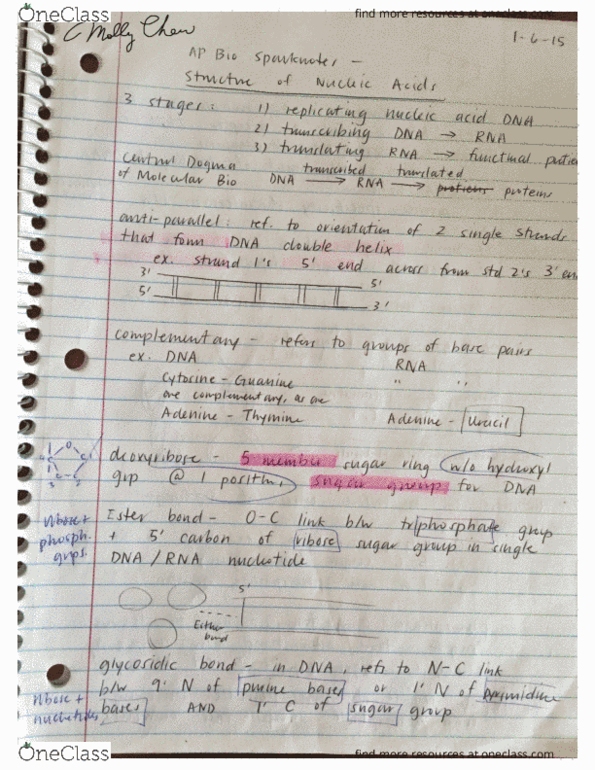 OneClass
find more resources at oneclass.com
Molly Chen
1-6-15
AP Bio Sparknotes -
Structure of Nucleic Acids
3 stages: 1) replicating nucleic acid DNA
2) transcribing DNA → RNA
3) translating RNA → functional
Central Dogma transcribed translated
of Molecular Bio DNA → RNA → proteins proteins
anti-parallel: ref. to orientation of 2 single strands
that form DNA double helix
ex. strand 1's 5' end across from std 2's 3' en
3' 5'
5' 3'
complementary - refers to groups of base pairs
ex. DNA RNA
Cytosine - Guanine " "
are complementary, as are
Adenine - Thymine Adenine - Uracil
deoxyribose - 5 member sugar ring w/o hydroxyl
grp @ 1 position, sugar group for DNA
O
Ester bond - O-C link b/w triphosphate group
+ 5' carbon of ribose sugar group in single
DNA/RNA nucleotide
ribose +
phosph.
grps.
5'
bond
glycosidic bond - in DNA, refs to N-C link
b/w 9' N of purine bases or 1' N of pyrimidine
bases AND 1' C of sugar group
ribose +
nucleotides
OneClass
find more resources at oneclass.com